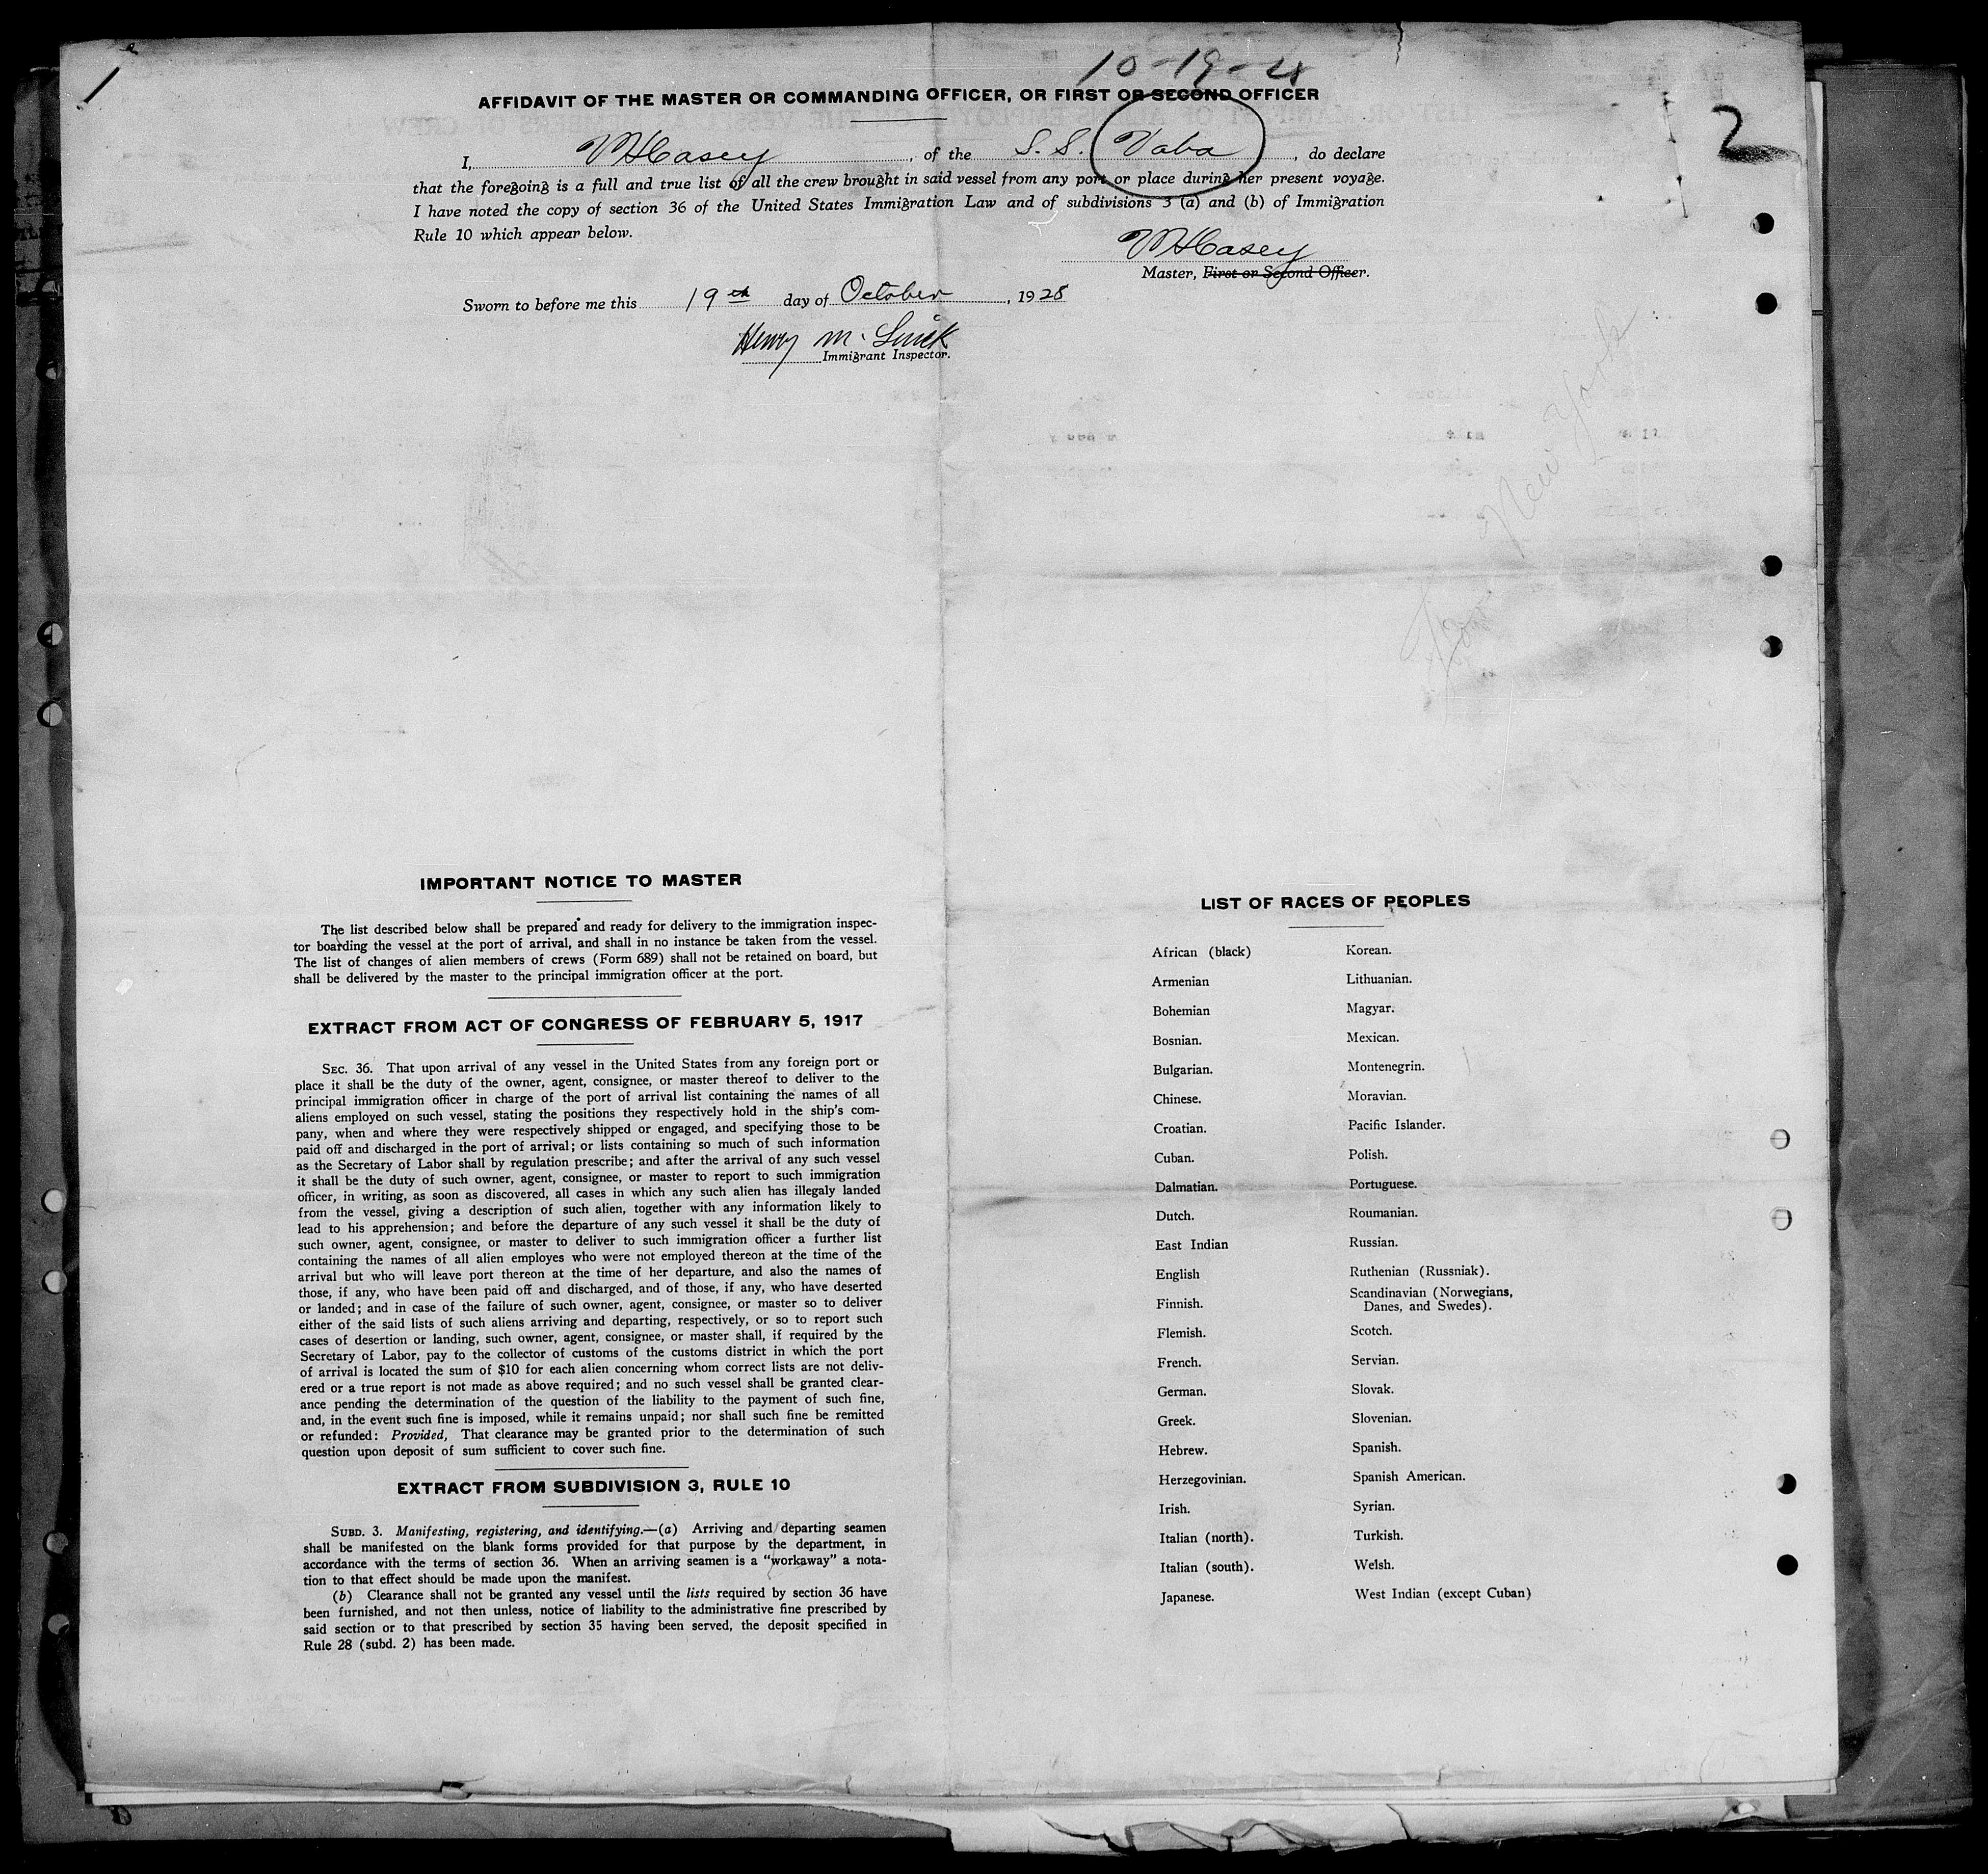 1
10-19-28
2
AFFIDAVIT OF THE MASTER OR COMMANDING OFFICER, OR FIRST OR SECOND OFFICER
I, W H Casey, of the S. S. Vaba, do declare
that the foregoing is a full and true list of all the crew brought in said vessel from any port or place during her present voyage.
I have noted the copy of section 36 of the United States Immigration Law and of subdivisions 3 (a) and (b) of Immigration
Rule 10 which appear below.
W H Casey
Master, First or Second Officer.
Sworn to before me this 19th day of October, 1928
Henry M.
Immigrant Inspector.
From New York
IMPORTANT NOTICE TO MASTER
The list described below shall be prepared and ready for delivery to the immigration inspec-
tor boarding the vessel at the port of arrival, and shall in no instance be taken from the vessel.
The list of changes of alien members of crews (Form 689) shall not be retained on board, but
shall be delivered by the master to the principal immigration officer at the port.
EXTRACT FROM ACT OF CONGRESS OF FEBRUARY 5, 1917
SEC. 36. That upon arrival of any vessel in the United States from any foreign port or
place it shall be the duty of the owner, agent, consignee, or master thereof to deliver to the
principal immigration officer in charge of the port of arrival list containing the names of all
aliens employed on such vessel, stating the positions they respectively hold in the ship's com-
pany, when and where they were respectively shipped or engaged, and specifying those to be
paid off and discharged in the port of arrival; or lists containing so much of such information
as the Secretary of Labor shall by regulation prescribe; and after the arrival of any such vessel
it shall be the duty of such owner, agent, consignee, or master to report to such immigration
officer, in writing, as soon as discovered, all cases in which any such alien has illegaly landed
from the vessel, giving a description of such alien, together with any information likely to
lead to his apprehension; and before the departure of any such vessel it shall be the duty of
such owner, agent, consignee, or master to deliver to such immigration officer a further list
containing the names of all alien employes who were not employed thereon at the time of the
arrival but who will leave port thereon at the time of her departure, and also the names of
those, if any, who have been paid off and discharged, and of those, if any, who have deserted
or landed; and in case of the failure of such owner, agent, consignee, or master so to deliver
either of the said lists of such aliens arriving and departing, respectively, or so to report such
cases of desertion or landing, such owner, agent, consignee, or master shall, if required by the
Secretary of Labor, pay to the collector of customs of the customs district in which the port
of arrival is located the sum of $10 for each alien concerning whom correct lists are not deliv-
ered or a true report is not made as above required; and no such vessel shall be granted clear-
ance pending the determination of the question of the liability to the payment of such fine,
and, in the event such fine is imposed, while it remains unpaid; nor shall such fine be remitted
or refunded: Provided, That clearance may be granted prior to the determination of such
question upon deposit of sum sufficient to cover such fine.
EXTRACT FROM SUBDIVISION 3, RULE 10
SUBD. 3. Manifesting, registering, and identifying.—(a) Arriving and departing seamen
shall be manifested on the blank forms provided for that purpose by the department, in
accordance with the terms of section 36. When an arriving seamen is a "workaway" a nota-
tion to that effect should be made upon the manifest.
(b) Clearance shall not be granted any vessel until the lists required by section 36 have
been furnished, and not then unless, notice of liability to the administrative fine prescribed by
said section or to that prescribed by section 35 having been served, the deposit specified in
Rule 28 (subd. 2) has been made.
LIST OF RACES OF PEOPLES
African (black)
Armenian
Bohemian
Bosnian.
Bulgarian.
Chinese.
Croatian.
Cuban.
Dalmatian.
Dutch.
East Indian
English
Finnish.
Flemish.
French.
German.
Greek.
Hebrew.
Herzegovinian.
Irish.
Italian (north).
Italian (south).
Japanese.
Korean.
Lithuanian.
Magyar.
Mexican.
Montenegrin.
Moravian.
Pacific Islander.
Polish.
Portuguese.
Roumanian.
Russian.
Ruthenian (Russniak).
Scandinavian (Norwegians,
Danes, and Swedes).
Scotch.
Servian.
Slovak.
Slovenian.
Spanish.
Spanish American.
Syrian.
Turkish.
Welsh.
West Indian (except Cuban)